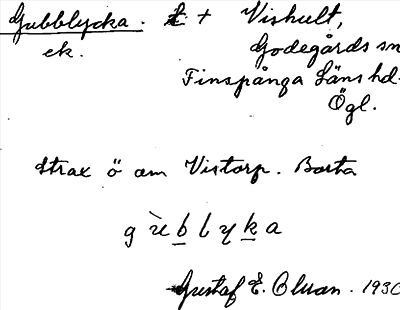 Gubblycka. + Vishult,
ek. Godegårds sn
Finspånga Läns hd.
Ögl.
Strax ö om Vistorp. Borta
g ù b l y k a
Gustaf E. 1930